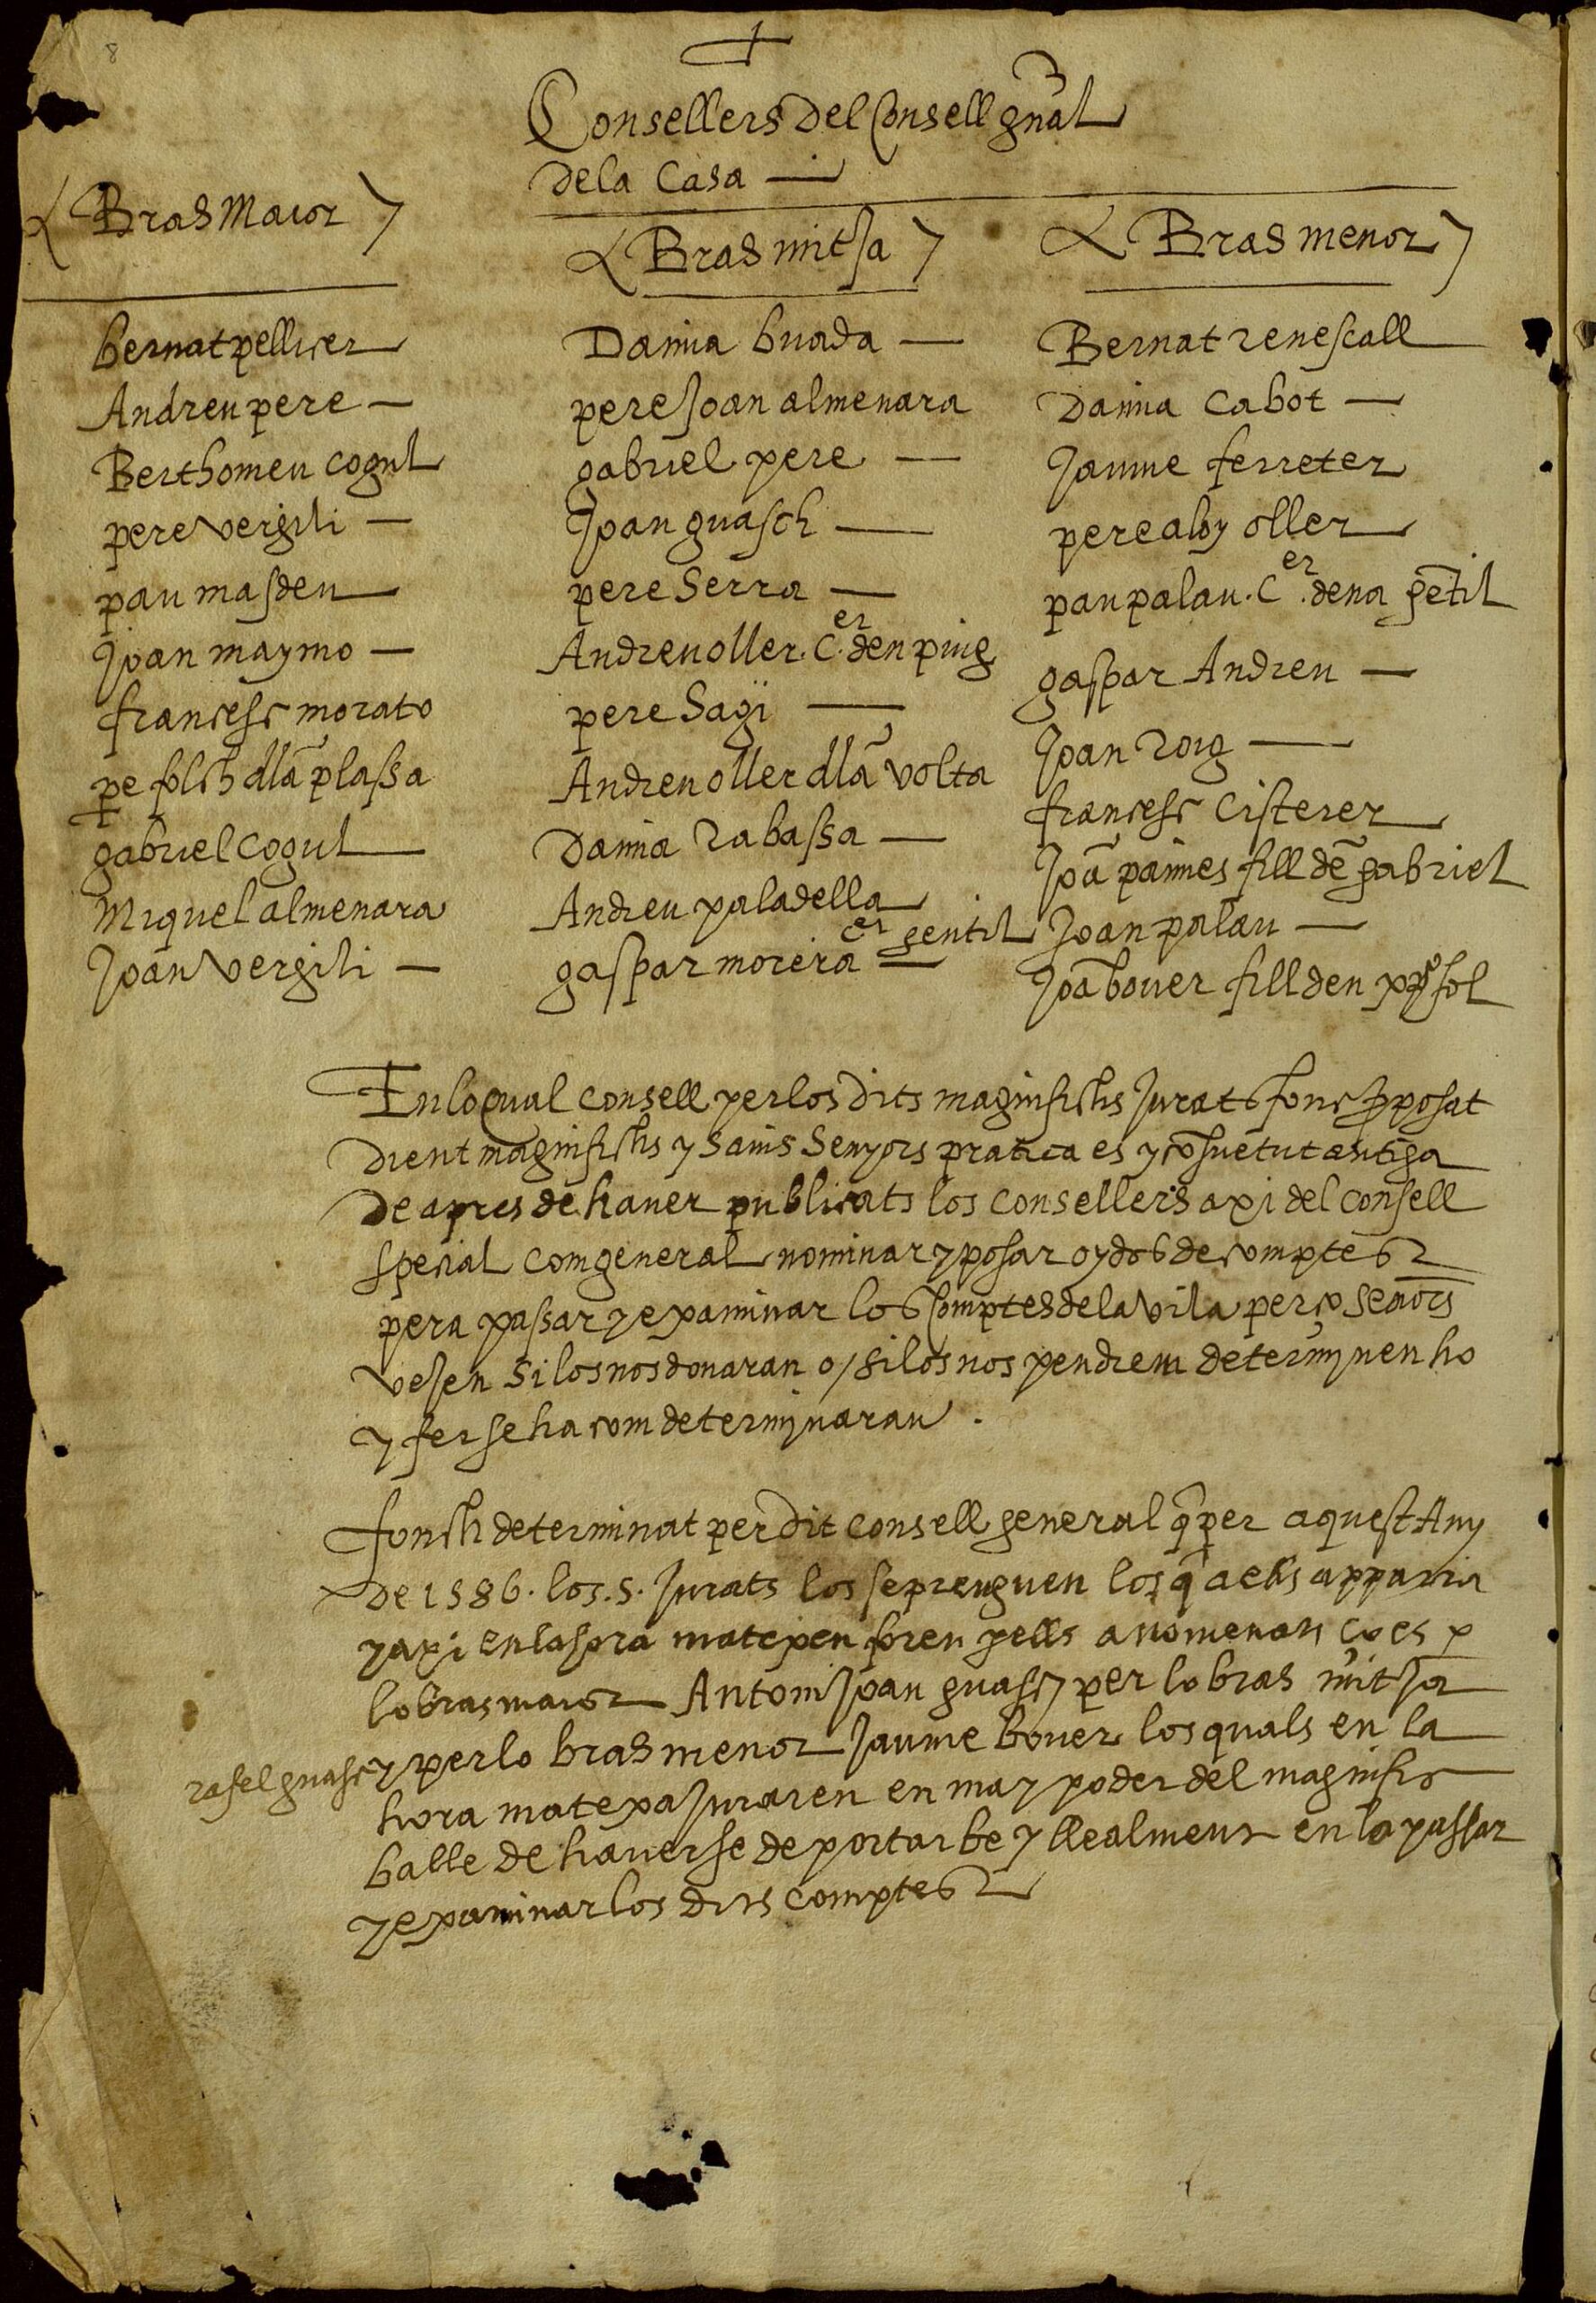 8
Consellers del Consell gñal
de la Casa —
Bras Maior
bernat pellicer
Andreu pere —
Berthomeu cogul
pere vergili —
pau masdeu
Joan maymo —
francesc morato
pe folch dla plassa
gabriel cogul
Miquel almenara
Joan vergili —
Bras mitja
Damia buada —
pere Joan almenara
gabriel pere —
Joan guasch —
pere Serra —
Andreu oller. C.er den puig
pere Sagi —
Andreu oller dla volta
Damia rabassa —
Andreu paladella
gaspar morera er gentil
Bras menor
Bernat renescall
Damia cabot —
Jaume ferreter
pere aloy oller
pau palau. C.er dena getil
gaspar Andreu —
Joan roig —
francesc cisterer
Joã pamies fill de gabriel
Joan palau —
Joã bover fill den
En lo qual consell per los dits magnifichs Jurats fonc pposat
dient magnifichs y savis Senyors pratica es y cõsuetut antiga
de apres de haver publicats los consellers axi del consell
special com general nominar y posar oydos de comptes
pera passar y examinar los Comptes de la vila perço señors
vejen si los nos donaran o si los nos pendrem determynen ho
y fer se ha com determynaran.
fonch determinat per dit consell general q̃ per aquest Any
de 1586. los. s. Jurats los se prenguen los q̃ a ells apparia
y axi en la hora matexen foren p ells anomenats ço es p
lo bras maior Antoni Joan guasch per lo bras mitja
rafel guasc y per lo bras menor Jaume bover los quals en la
hora matexa Juraren en ma y poder del magnific
balle de haver se de portar be y llealment en lo passar
y examinar los dits comptes